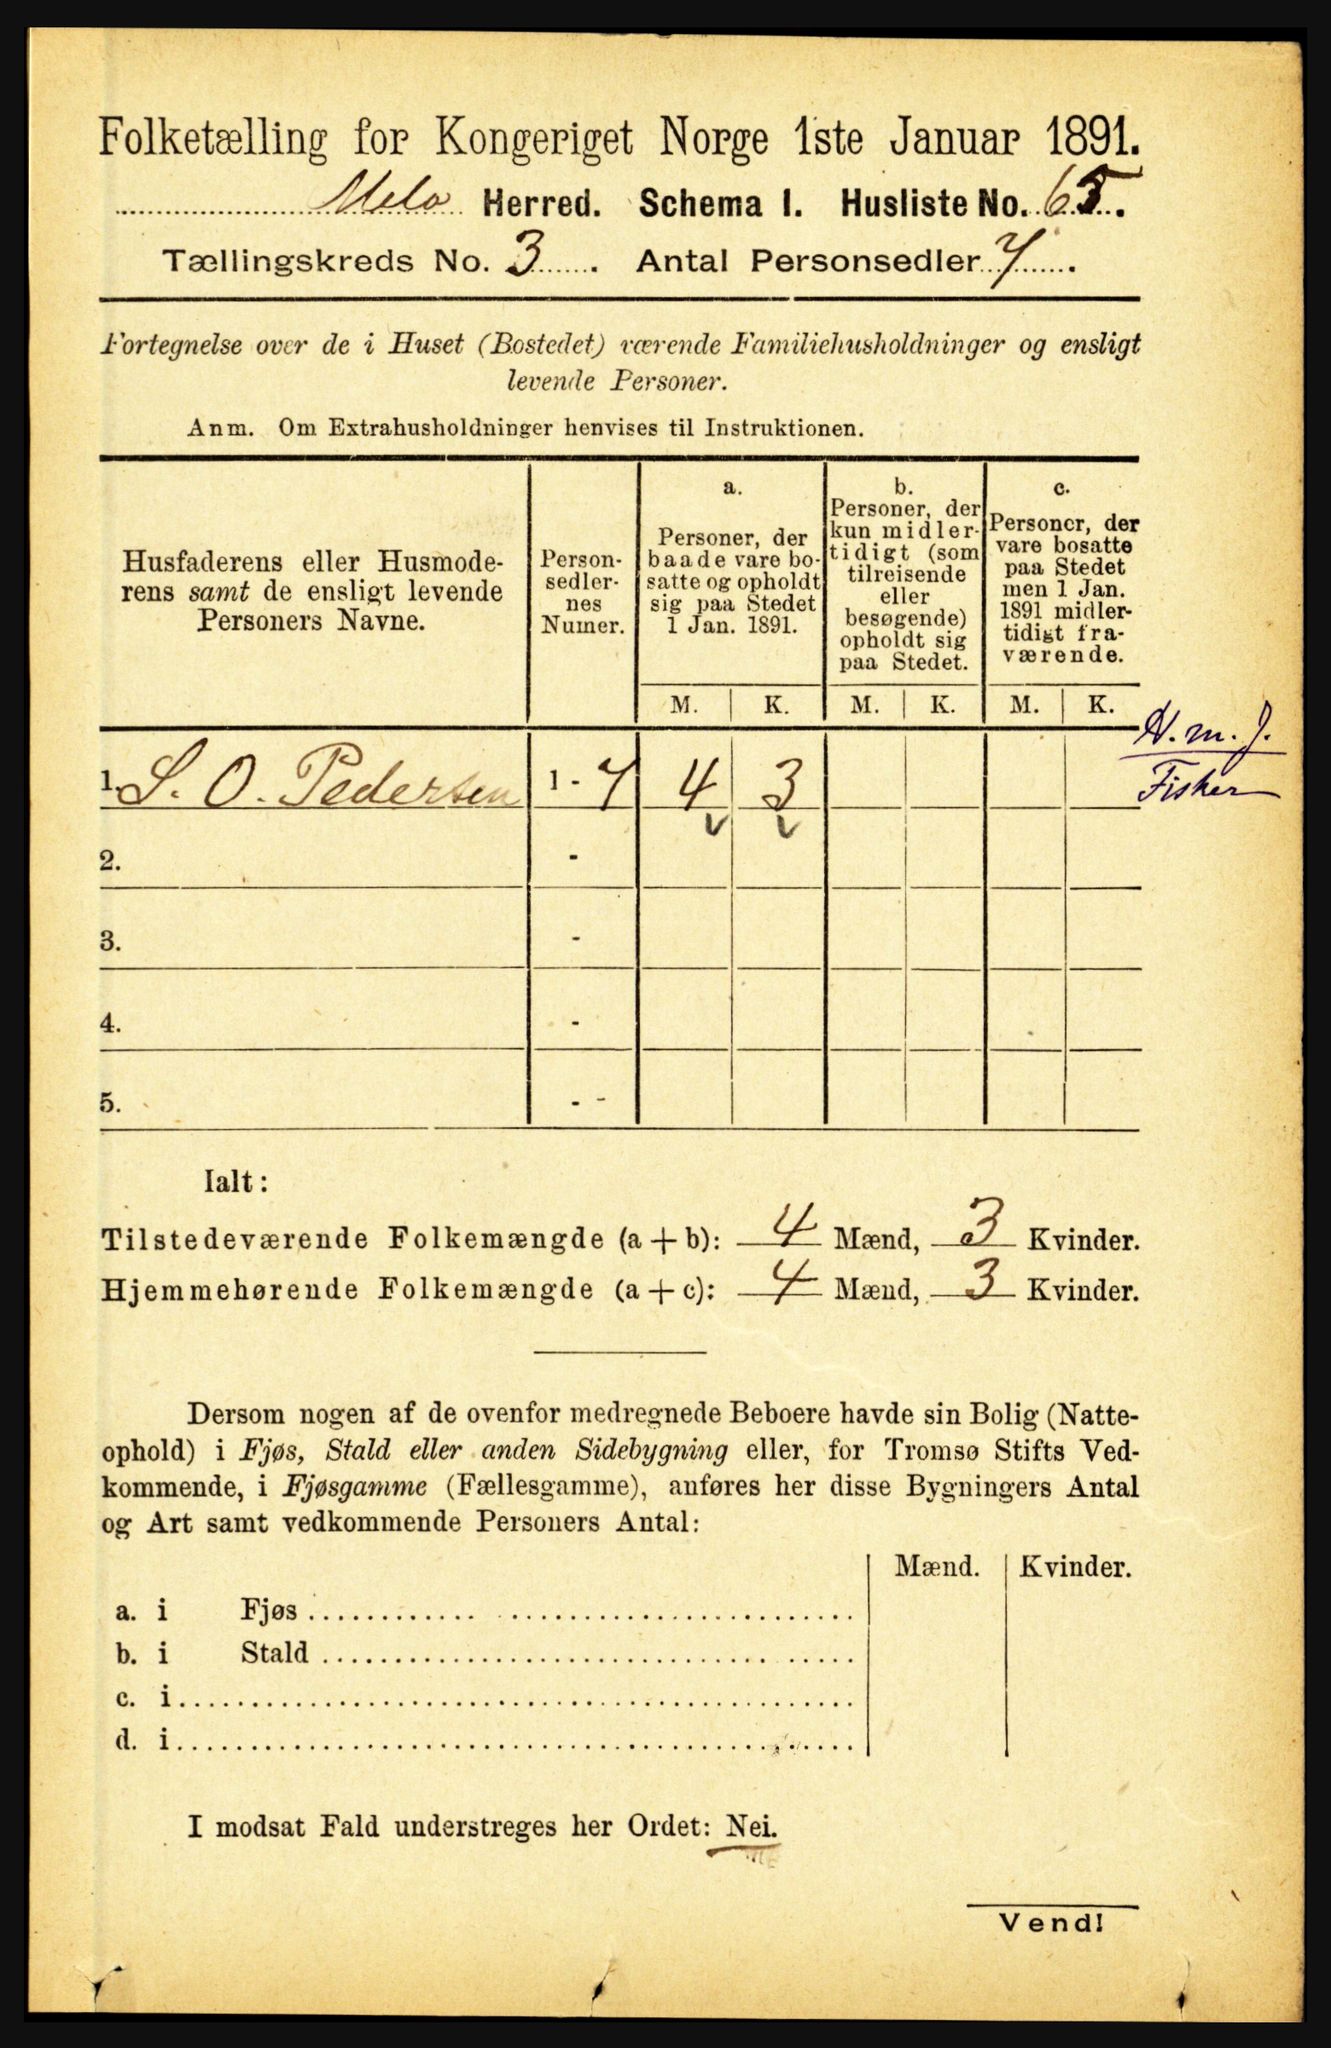 Folketælling for Kongeriget Norge 1ste Januar 1891.
Melø Herred. Schema I. Husliste No. 65.
Tællingskreds No. 3. Antal Personsedler 7.
Fortegnelse over de i Huset (Bostedet) værende Familiehusholdninger og ensligt
levende Personer.
Anm. Om Extrahusholdninger henvises til Instruktionen.
Husfaderens eller Husmode-
rens samt de ensligt levende
Personers Navne.
Person-
sedler-
nes
Numer.
a.
Personer, der
baade vare bo-
satte og opholdt
sig paa Stedet
1 Jan. 1891.
b.
Personer, der
kun midler-
tidigt (som
tilreisende
eller
besøgende)
opholdt sig
paa Stedet.
c.
Personer, der
vare bosatte
paa Stedet
men 1 Jan.
1891 midler-
tidigt fra-
værende.
M. K. M. K. M. K.
1. S. O. Pedersen 1 - 7 4 3
H. m. J.
Fisker
2. -
3. -
4. -
5. - -
Ialt:
Tilstedeværende Folkemængde (a+b): 4 Mænd, 3 Kvinder.
Hjemmehørende Folkemængde (a+c): 4 Mænd, 3 Kvinder.
Dersom nogen af de ovenfor medregnede Beboere havde sin Bolig (Natte-
ophold) i Fjøs, Stald eller anden Sidebygning eller, for Tromsø Stifts Ved-
kommende, i Fjøsgamme (Fællesgamme), anføres her disse Bygningers Antal
og Art samt vedkommende Personers Antal:
Mænd. Kvinder.
a. i Fjøs
b. i Stald
c. i
d. i
I modsat Fald understreges her Ordet: Nei.
Vend!